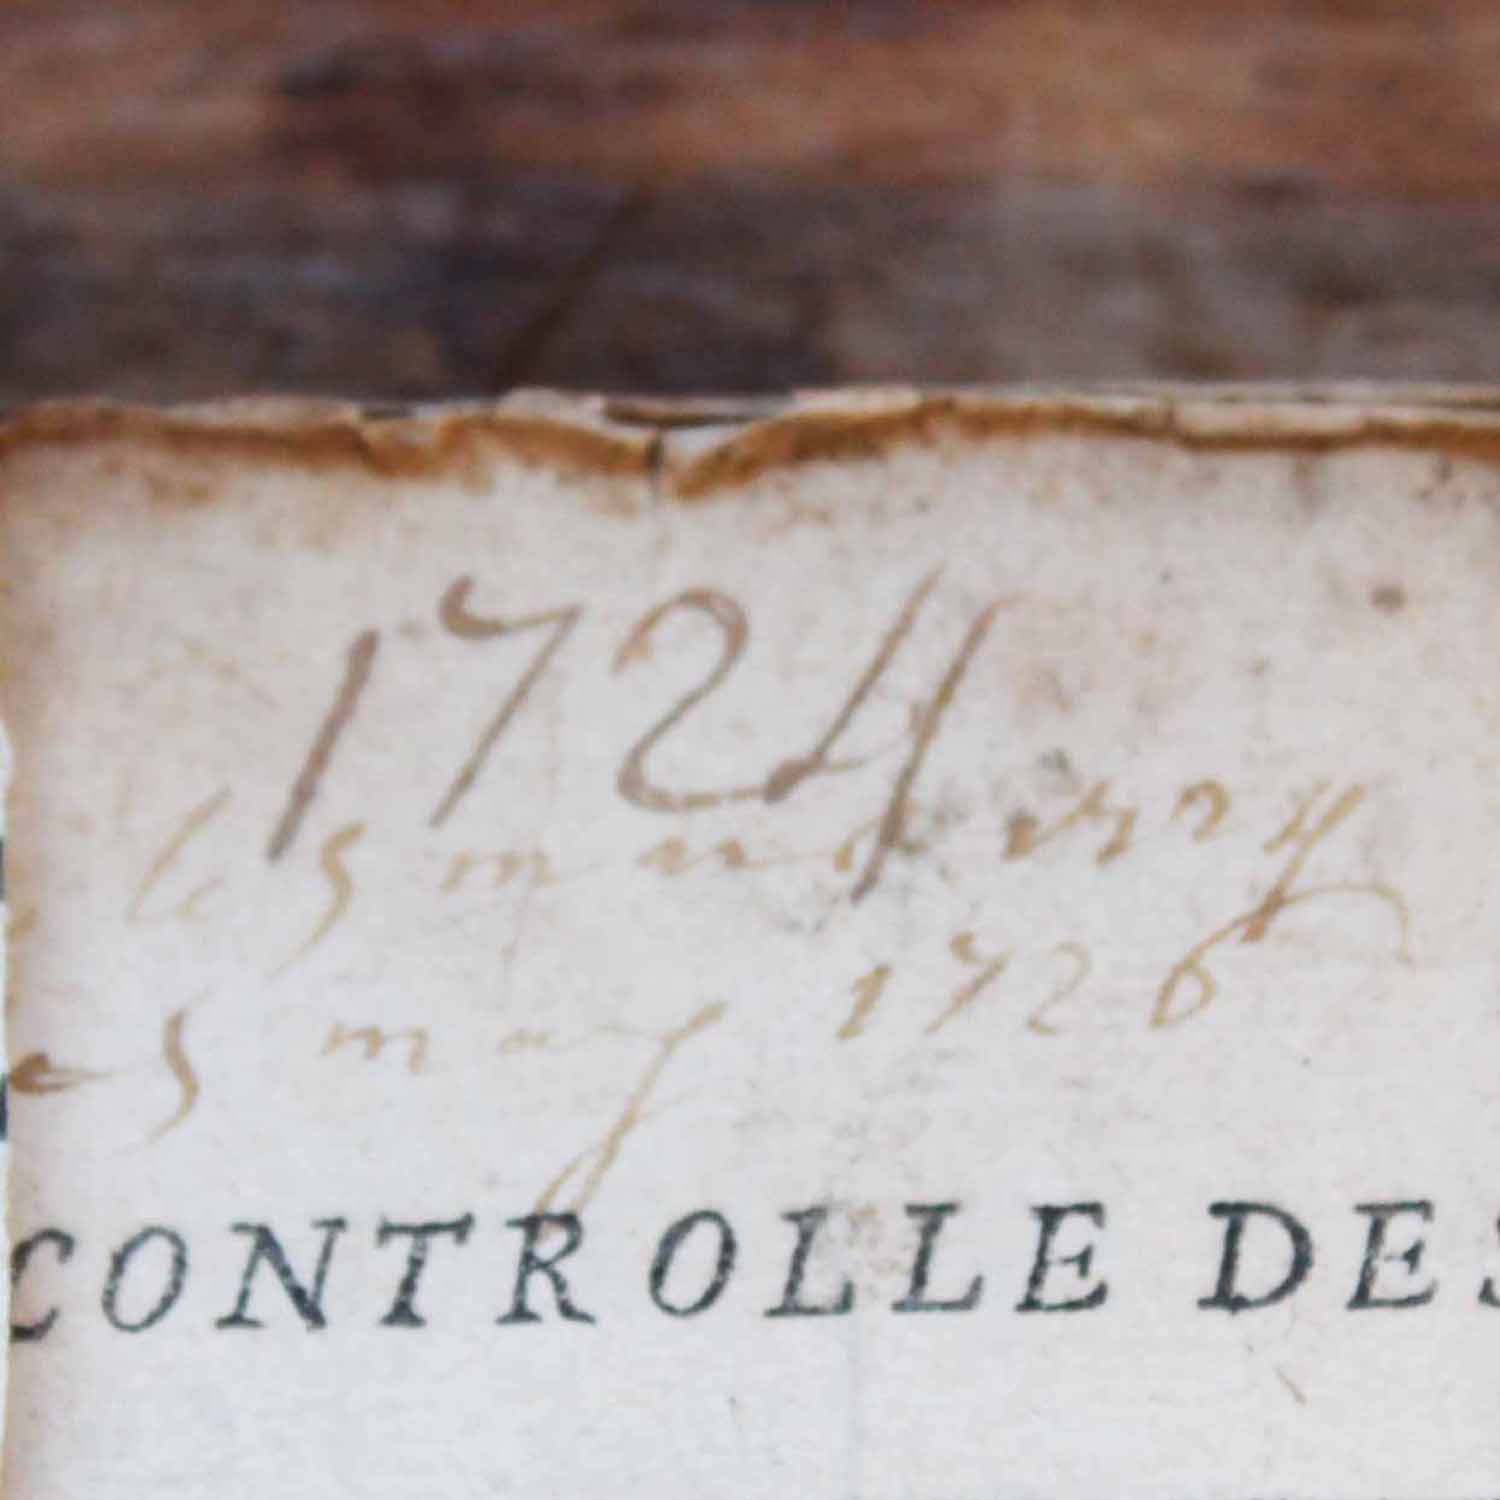 1724
le 5 mars 1724
5 may 1726
CONTROLLE DES